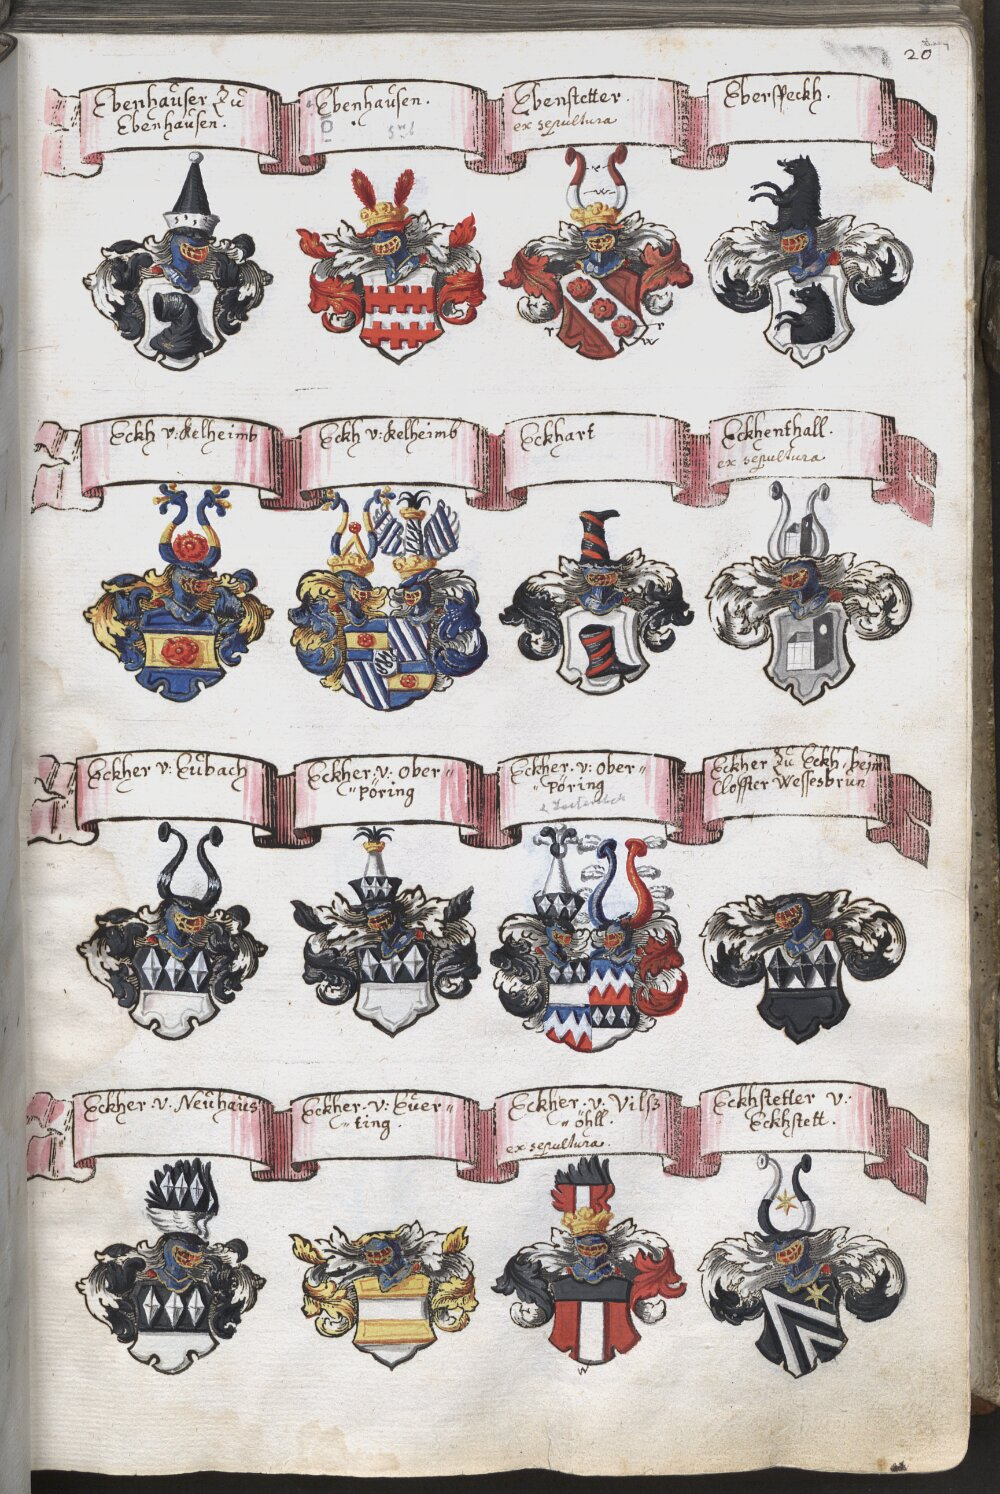 20
Ebenhauser Zu
Ebenhausen.
Ebenhausen.
Ebenstetter.
ex sepultura
Eberspeckh.
r
w
r
r
w
Eckh v: Kelheimb
Eckh v: Kelheimb
Eckhart
Eckhenthall.
ex sepultura
Eckher v: Eubach
Eckher: v: Ober=
=Pöring
Eckher: v: Ober=
=Pöring
Eckher Zu Eckh, beim
Cloffter Wessesbrun
Eckher: v. Neuhaus
Eckher: v: Euer=
=ting.
Eckher: v. Vilss
=öhll.
ex sepultura.
Eckhstetter v:
Eckhstett.
w